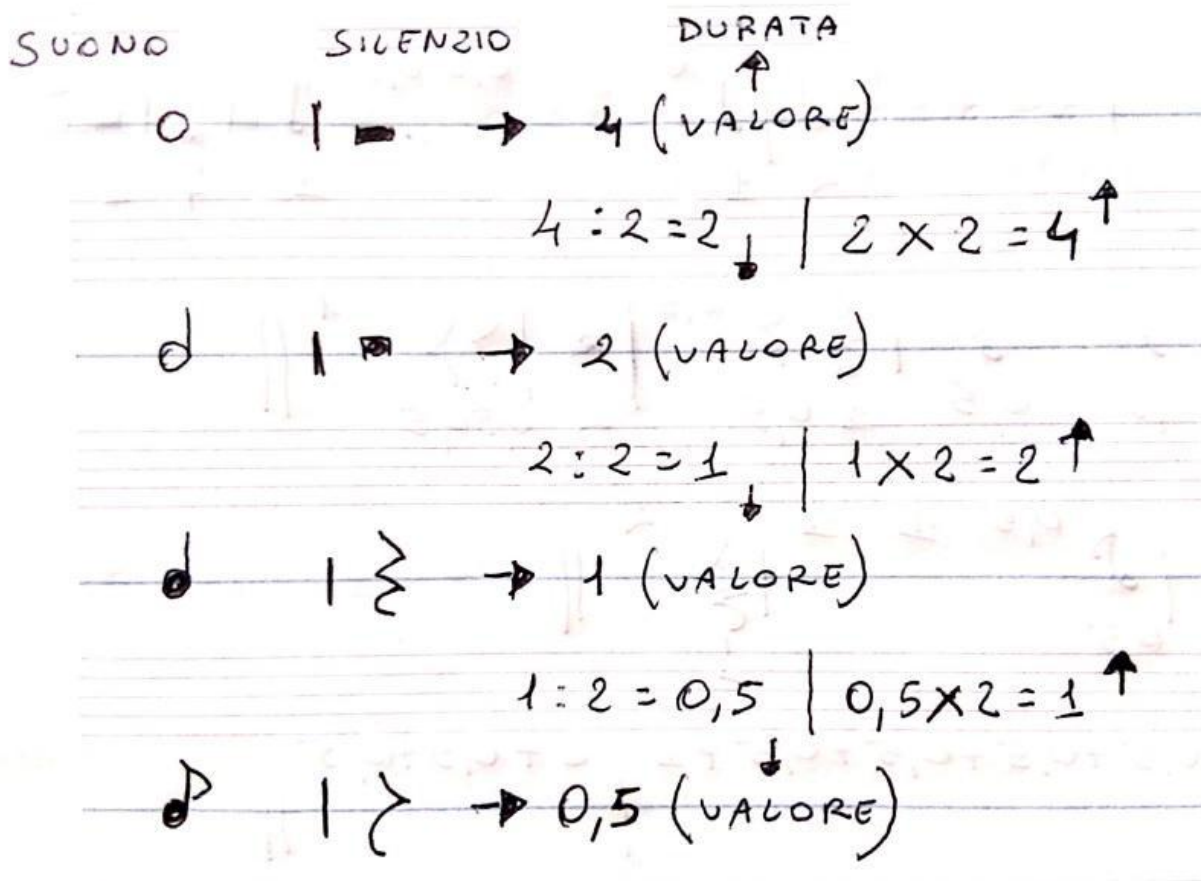 SUONO SILENZIO DURATA
4 (VALORE)
4 : 2 = 2 | 2 X 2 = 4
2 (VALORE)
2 : 2 = 1 | 1 X 2 = 2
1 (VALORE)
1 : 2 = 0,5 | 0,5 X 2 = 1
0,5 (VALORE)